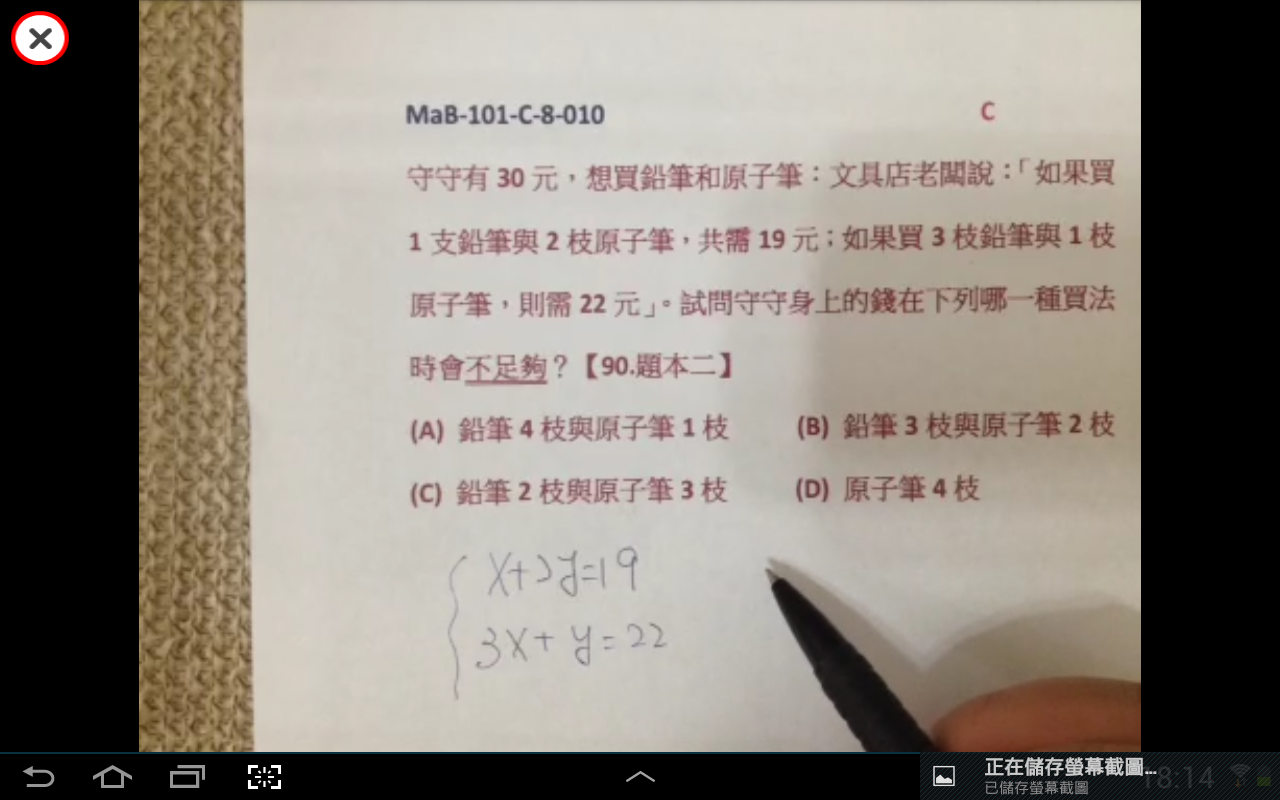 MaB-101-C-8-010 C
守守有 30 元，想買鉛筆和原子筆：文具店老闆說：「如果買
1 支鉛筆與 2 枝原子筆，共需 19 元；如果買 3 枝鉛筆與 1 枝
原子筆，則需 22 元」。試問守守身上的錢在下列哪一種買法
時會不足夠？【90.題本二】
(A) 鉛筆 4 枝與原子筆 1 枝 (B) 鉛筆 3 枝與原子筆 2 枝
(C) 鉛筆 2 枝與原子筆 3 枝 (D) 原子筆 4 枝
x+2y=19
3x+y=22
正在儲存螢幕截圖...
已儲存螢幕截圖
18:14